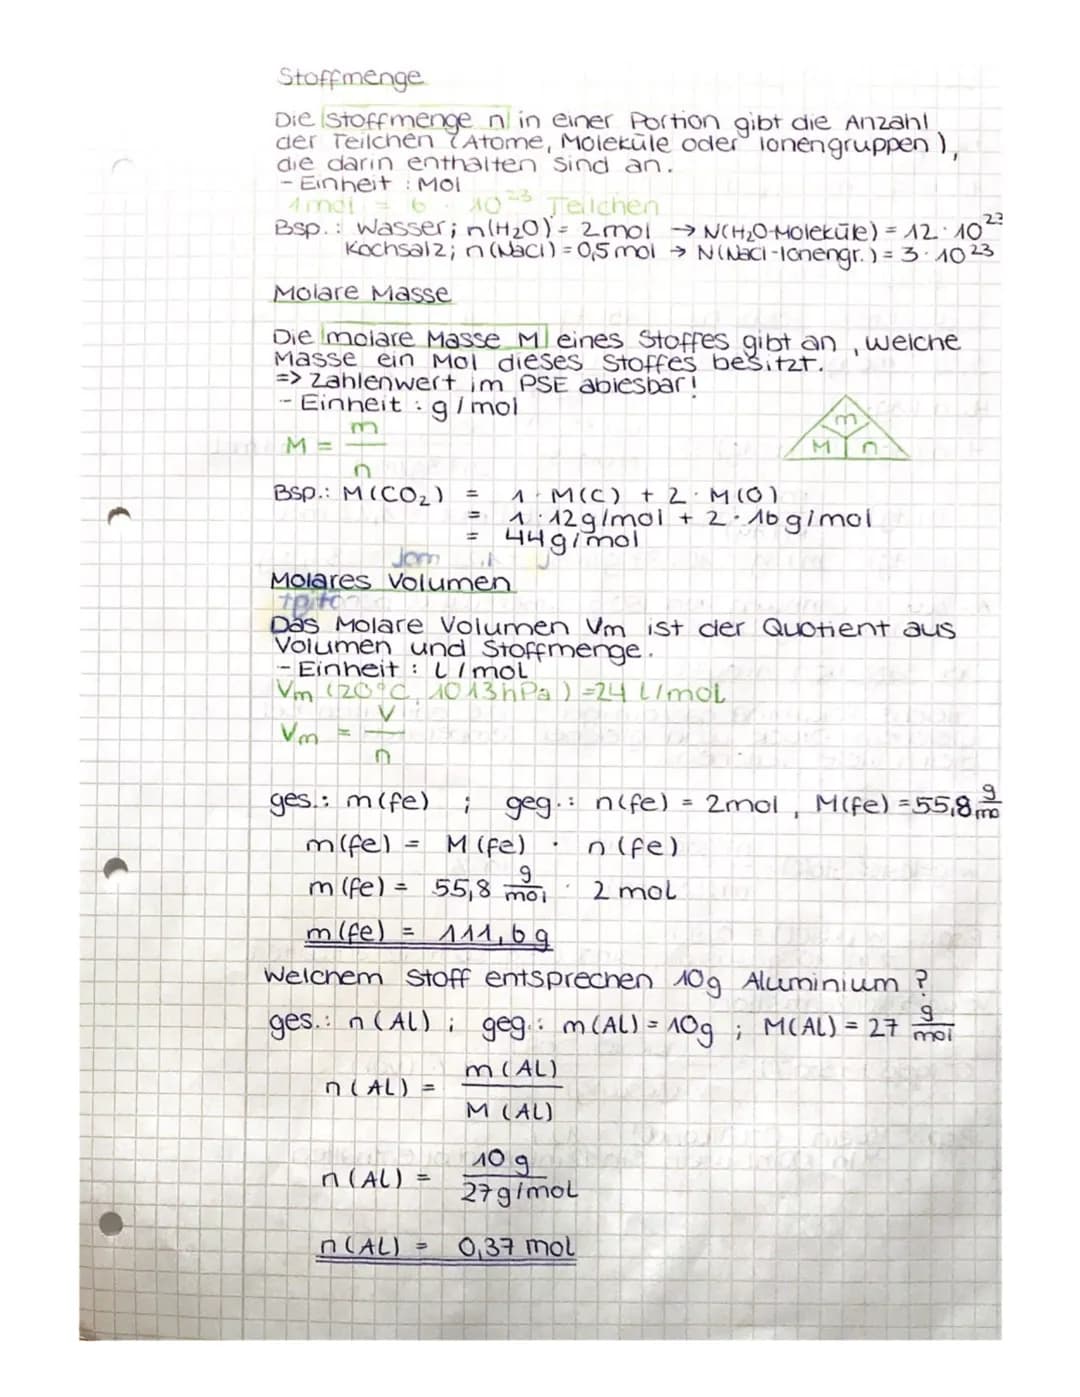 Stoffmenge
Die Stoffmenge n in einer Portion gibt die Anzahl
der Teilchen (Atome, Moleküle oder Ionengruppen),
die darin enthalten sind an.
- Einheit : Mol
1mol = 6 · 10²³ Teilchen
Bsp.: Wasser; n(H₂O) = 2mol → N(H₂O-Moleküle) = 12 · 10²³
Kochsalz; n(NaCl) = 0,5 mol → N(NaCl-Ionengr.) = 3 · 10²³
Molare Masse
Die molare Masse M eines Stoffes gibt an, welche
Masse ein Mol dieses Stoffes besitzt.
=> Zahlenwert im PSE ablesbar!
- Einheit : g/mol
M = m/n
m
M n
Bsp.: M(CO₂) = 1 · M(C) + 2 · M(O)
= 1 · 12g/mol + 2 · 16g/mol
= 44g/mol
Molares Volumen
Das Molare Volumen Vm ist der Quotient aus
Volumen und Stoffmenge.
- Einheit : L/mol
Vm (20°C, 1013hPa) = 24 L/mol
Vm = V/n
ges.: m(fe) ; geg.: n(fe) = 2mol, M(fe) = 55,8 g/mo
m(fe) = M(fe) · n(fe)
m(fe) = 55,8 g/mol · 2 mol
m(fe) = 111,6g
Welchem Stoff entsprechen 10g Aluminium?
ges.: n(AL); geg.: m(AL) = 10g ; M(AL) = 27 g/mol
n(AL) = m(AL)/M(AL)
n(AL) = 10g/27g/mol
n(AL) = 0,37 mol